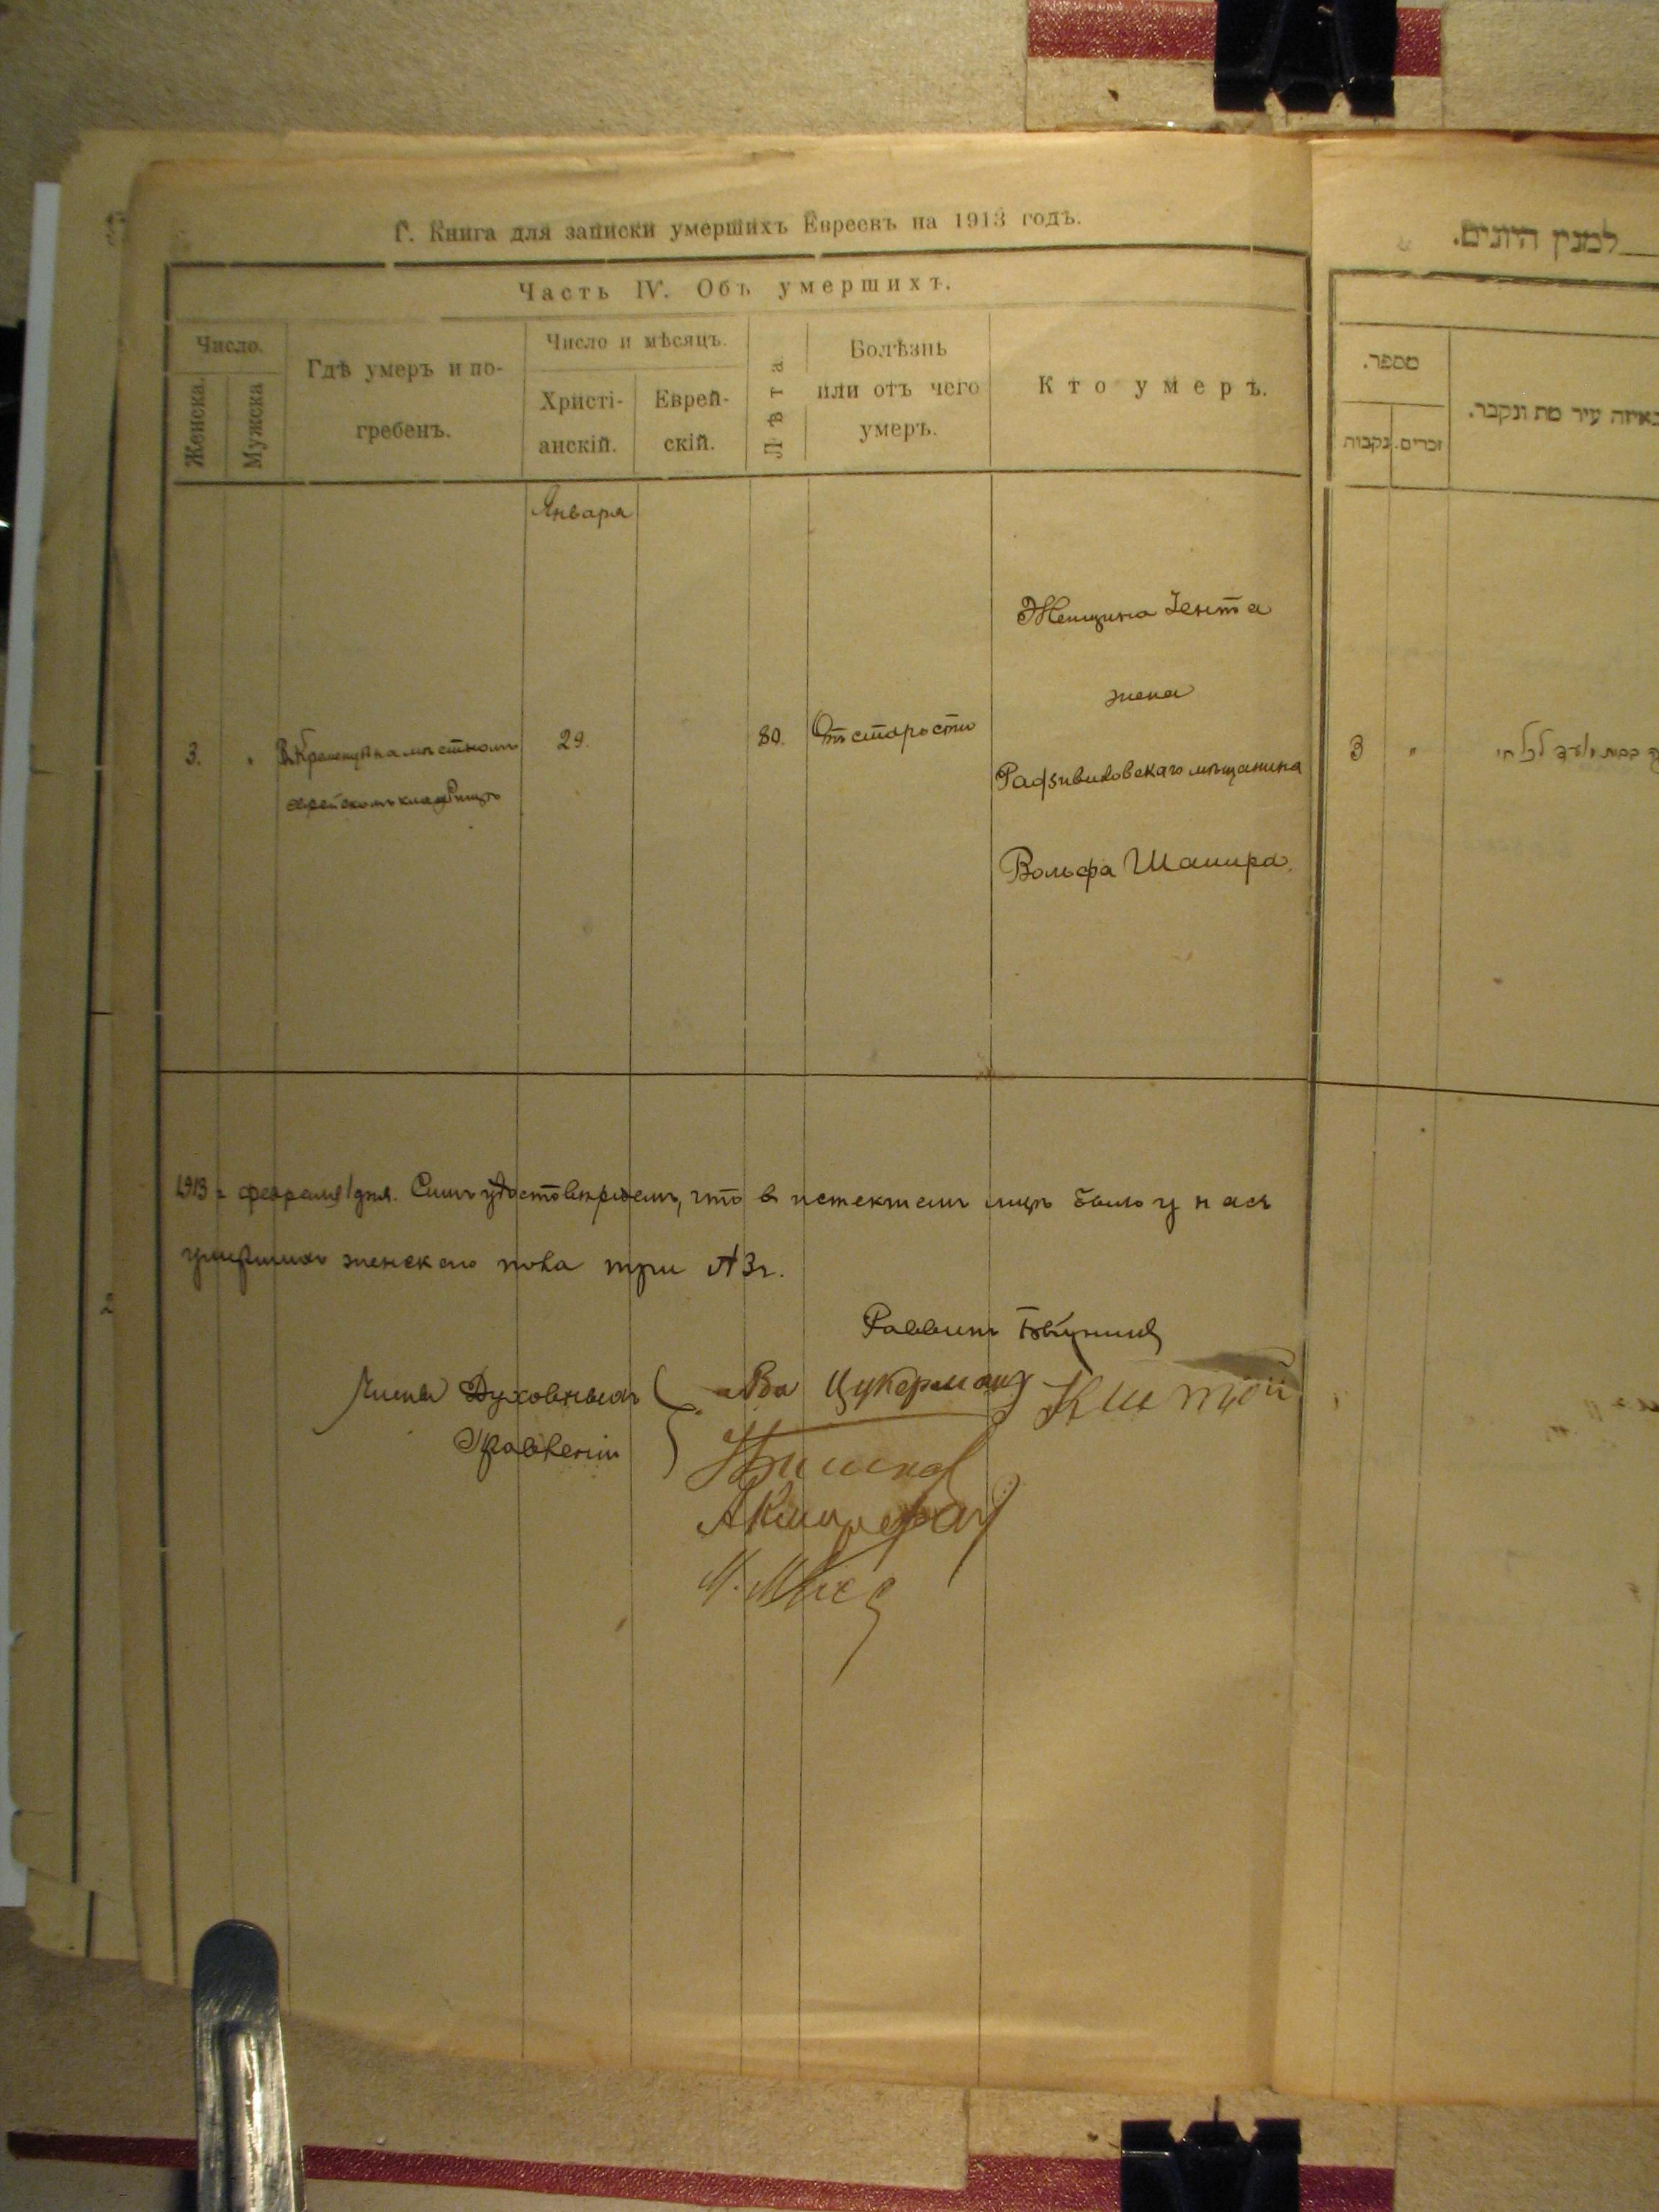 Г. Книга для записки умершихъ Евреевъ на 1913 годъ.
Часть IV. Объ умершихъ.
Число.
Женска.
Мужска
Гдѣ умеръ и по-
гребенъ.
Число и мѣсяцъ.
Христі-
анскій.
Еврей-
скій.
Лѣта.
Болѣзнь
или отъ чего
умеръ.
Кто умеръ.
Января
3.
"
Въ Кременцѣ на мѣстномъ
еврейскомъ кладбищѣ
29.
80.
Отъ старости
Женщина Іента
жена
Радзивиловскаго мѣщанина
Вольфа Шапира.
1913 г. февраля 1 дня. Симъ удостовѣряемъ, что в истекшемъ мцѣ было у насъ
умершихъ женскаго пола три №3г.
Раввинъ
Члены Духовныхъ
Правленій
Цукерманъ
למנין היונים.
מספר.
נקבות
זכרים.
באיזה עיר מת ונקבר.
3
"